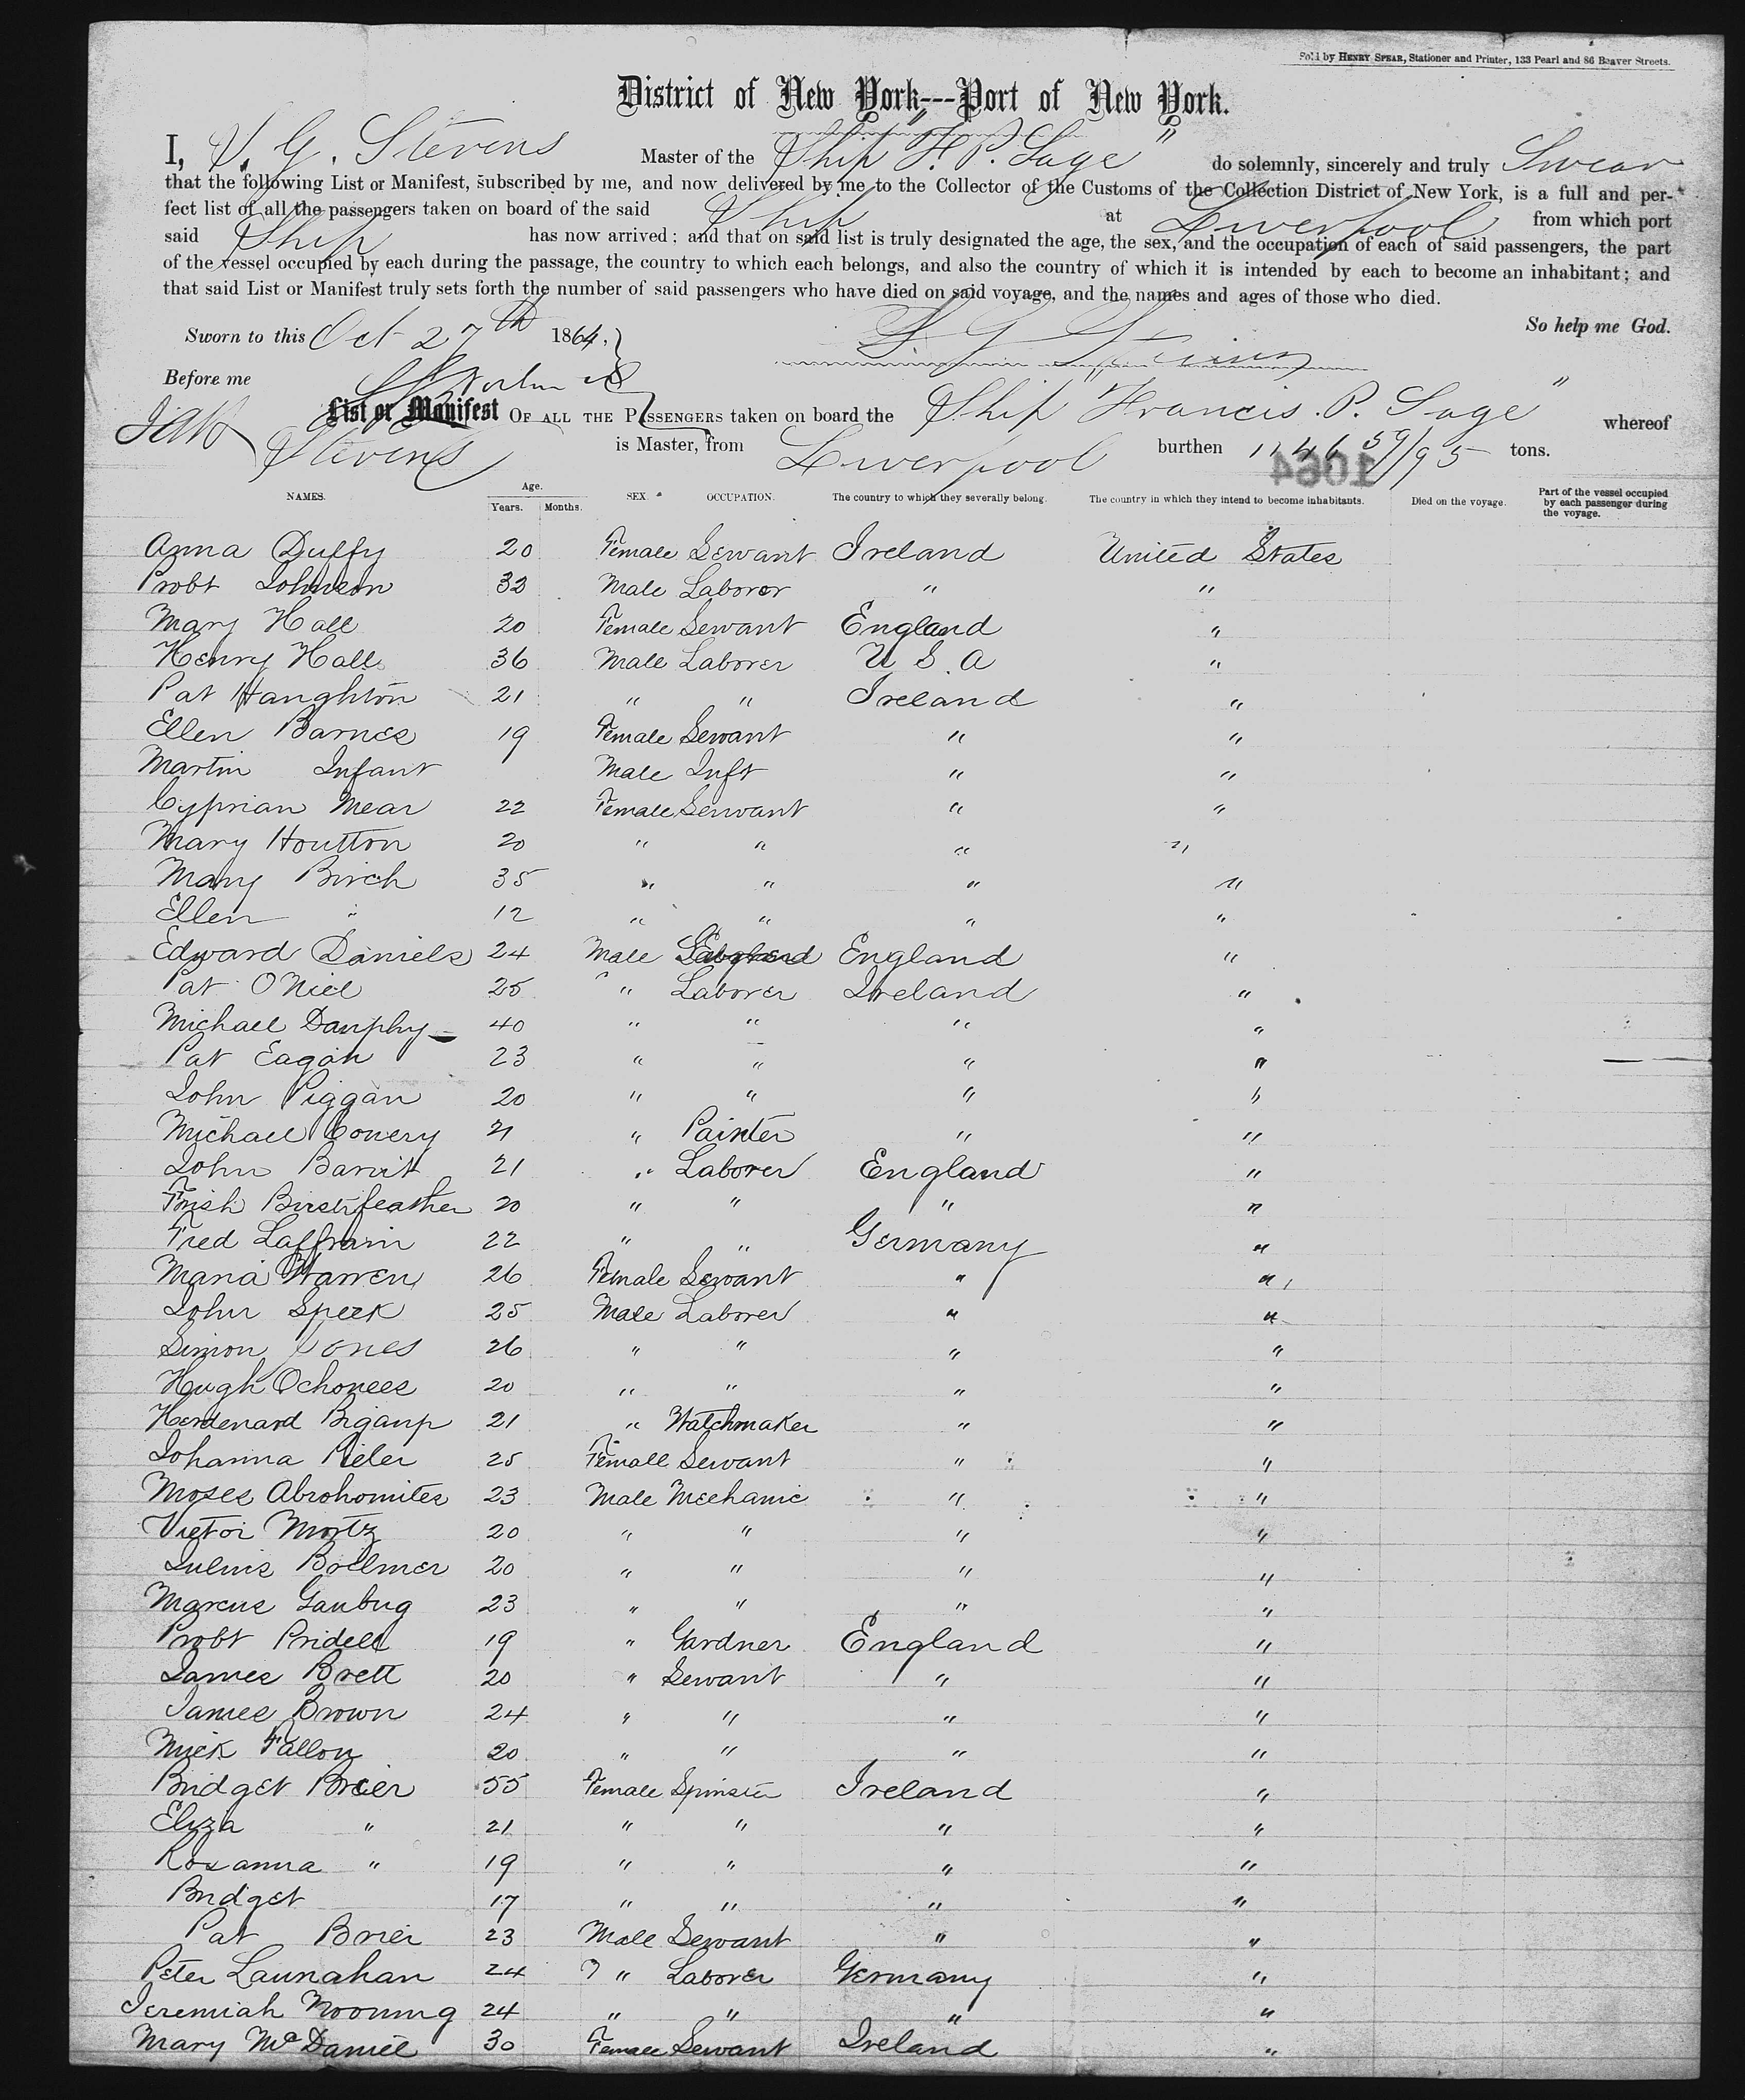 Sold by HENRY SPEAR, Stationer and Printer, 133 Pearl and 86 Beaver Streets.
District of New York---Port of New York.
I, G. Stevens Master of the Ship "F. P. Sage" do solemnly, sincerely and truly Swear
that the following List or Manifest, subscribed by me, and now delivered by me to the Collector of the Customs of the Collection District of New York, is a full and per-
fect list of all the passengers taken on board of the said Ship at Liverpool from which port
said Ship has now arrived: and that on said list is truly designated the age, the sex, and the occupation of each of said passengers, the part
of the vessel occupied by each during the passage, the country to which each belongs, and also the country of which it is intended by each to become an inhabitant; and
that said List or Manifest truly sets forth the number of said passengers who have died on said voyage, and the names and ages of those who died.
So help me God.
Sworn to this Oct 27th 1864.
Before me
List or Manifest OF ALL THE PASSENGERS taken on board the Ship "Francis. P. Sage" whereof
Stevens is Master, from Liverpool burthen 1146 59/95 tons.
1064
NAMES. Age. Years. Months. SEX. OCCUPATION. The country to which they severally belong. The country in which they intend to become inhabitants. Died on the voyage. Part of the vessel occupied by each passenger during the voyage.
Anna Duffy 20 Female Servant Ireland United States
Robt Johnson 32 Male Laborer " "
Mary Hall 20 Female Servant England "
Henry Hall 36 Male Laborer U S A "
Pat Haughton 21 " " Ireland "
Ellen Barnes 19 Female Servant " "
Martin Infant Male Inft " "
Cyprian Mear 22 Female Servant " "
Mary Houtton 20 " " " "
Mary Birch 35 " " " "
Ellen " 12 " " " "
Edward Daniels 24 Male England "
Pat O'Niel 25 " Laborer Ireland "
Michael Dauphy 40 " " " "
Pat Eagan 23 " " " "
John Piggan 20 " " " "
Michael Conery 21 " Painter " "
John Barvit 21 " Laborer England "
Frish Birstrfeather 20 " " " "
Fred Laffram 22 " " Germany "
Maria Warren 26 Female Servant " "
John Speek 25 Male Laborer " "
Simon Jones 26 " " " "
Hugh Ochonees 20 " " " "
Herdenard Biganp 21 " Watchmaker " "
Johanna Pieler 25 Female Servant " "
Moses Abrohomites 23 Male Mechanic " "
Victor Mortz 20 " " " "
Julius Bollmer 20 " " " "
Marcus Gaubug 23 " " " "
Robt Pridell 19 " Gardner England "
James Brett 20 " Servant " "
James Brown 24 " " " "
Mick Fallon 20 " " " "
Bridget Breier 55 Female Spinster Ireland "
Eliza " 21 " " " "
Rosanna " 19 " " " "
Bridget 17 " " " "
Pat Brier 23 Male Servant " "
Peter Launahan 24 " Laborer Germany "
Jeremiah Nooning 24 " " " "
Mary McDaniel 30 Female Servant Ireland "